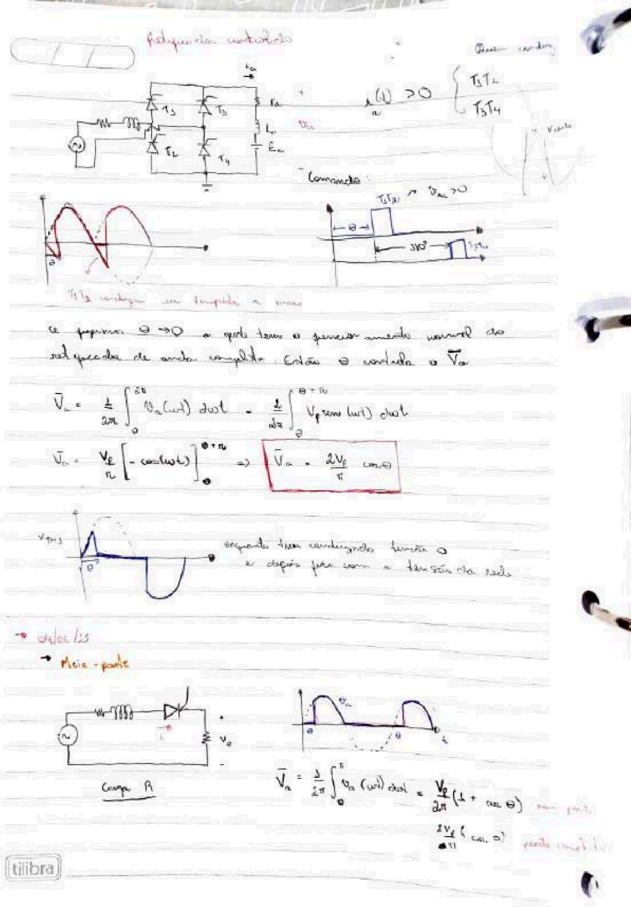 Retificador controlado
Quem conduz
i_a(t) > 0 { T1T2
T3T4
i_a
+
r_a
v_a
L_a
E_a
-
T1 T3
T2 T4
Comando:
T1T2 → v_AC > 0
θ
180°
T3T4
θ
T1T2 conduzem
θ → 0 a gente tem o funcionamento normal do
retificador de onda completa. Então θ controla o V̄a
V̄a = 1/2π ∫₀^2π va(ωt) dωt = 2/2π ∫_θ^θ+π Vp sen(ωt) dωt
V̄a = Vp/π [-cos(ωt)]_θ^θ+π ⇒ V̄a = 2Vp/π cosθ
V_TH1
θ
enquanto tiver conduzindo tensão 0
e depois fica com a tensão da rede
→ Meia-ponte
i
+
v_a
-
Carga R
v_a
θ θ t
V̄a = 1/2π ∫₀^π va(ωt) dωt = Vp/2π (1 + cos θ) meia ponte
2Vp/π (cos θ) ponte compl.
tilibra